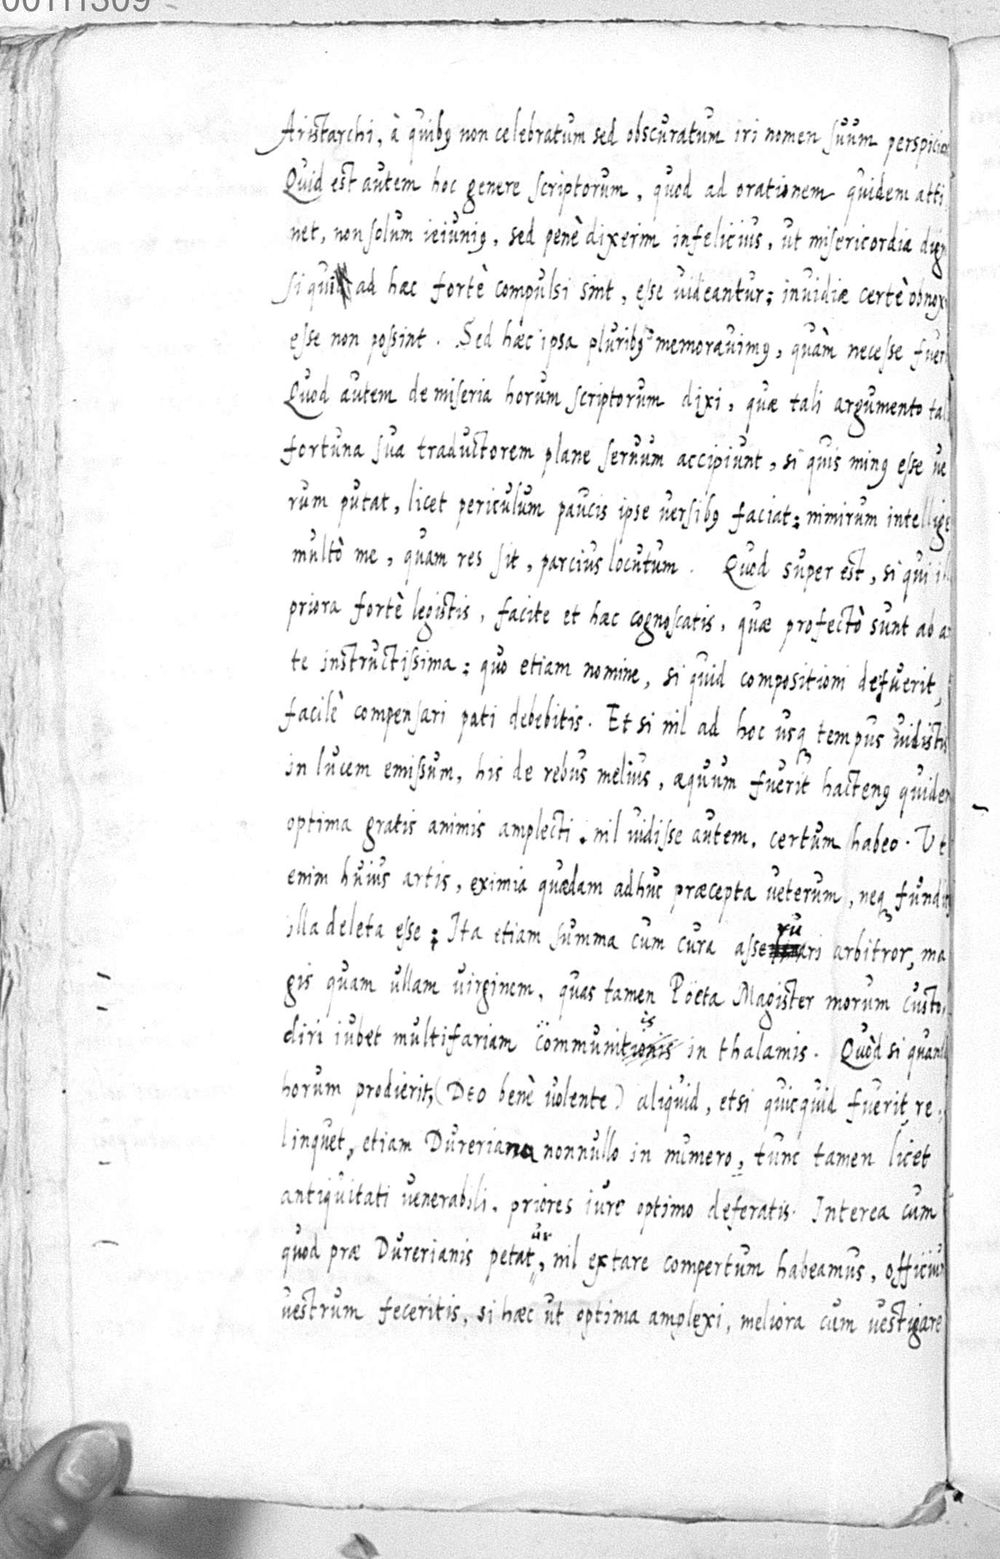 00111309
Aristarchi, à quibꝰ non celebratum sed obscuratum iri nomen suum perspicia
Quid est autem hoc genere scriptorum, quod ad orationem quidem atti
net, non solum ieiuniꝰ, sed penè dixerim infelicius, ut misericordia dign
si qui ad hæc fortè compulsi sint, esse uideantur; inuidiæ certè obnox
esse non possint. Sed hæc ipsa pluribꝰ memorauimꝰ, quàm necesse fuer
Quod autem de miseria horum scriptorum dixi, quæ tali argumento tal
fortuna sua traductorem plane seruum accipiunt, si quis minꝰ esse ue
rum putat, licet periculum paucis ipse uersibꝰ faciat; nimirum intellige
multò me, quam res sit, parcius locutum. Quod super est, si qui i
priora fortè legistis, facite et hæc cognoscatis, quæ profectò sunt ab ar
te instructissima; quo etiam nomine, si quid compositioni defuerit,
facilè compensari pati debebitis. Et si nil ad hoc usq tempus uidistis
in lucem emissum, his de rebus melius, æquum fuerit hactenꝰ quidem
optima gratis animis amplecti. nil uidisse autem, certum habeo. Ut
enim huius artis, eximia quædam adhuc præcepta ueterum, neq fundit
illa deleta esse; Ita etiam summa cum cura asseruari arbitror, ma
gis quam ullam uirginem, quas tamen Poëta Magister morum custo,
diri iubet multifariam communitis in thalamis. Quòd si quando
horum prodierit, (DEO benè uolente) aliquid, etsi quicquid fuerit re,
linquet, etiam Dureriana nonnullo in numero, tunc tamen licet
antiquitati uenerabili, priores iure optimo deferatis. Interea cum
quod præ Durerianis petatur, nil extare compertum habeamus, officium
uestrum feceritis, si hæc ut optima amplexi, meliora cum uestigare